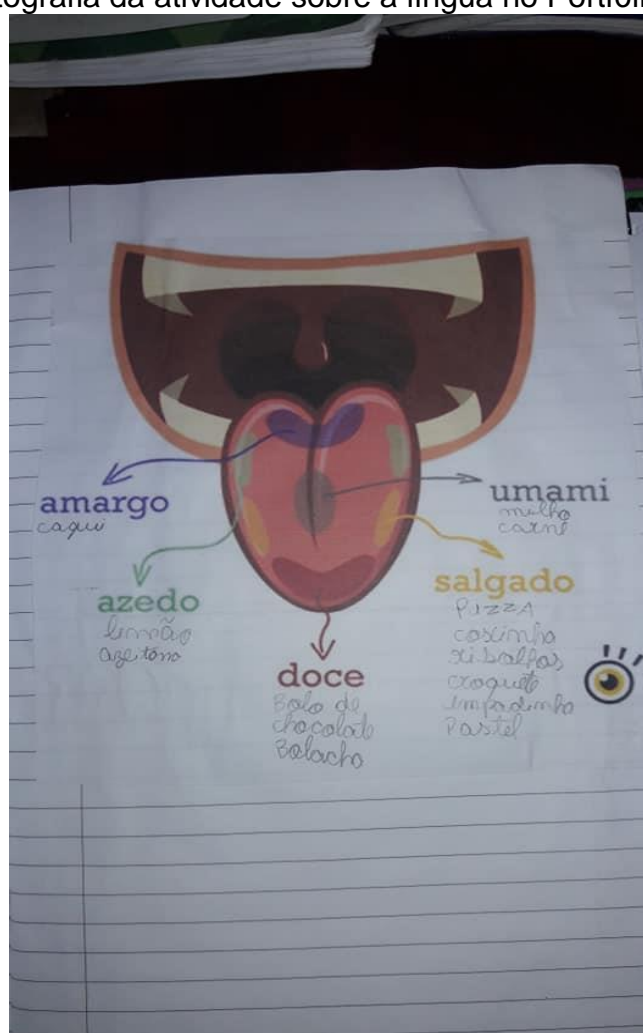 tografia da atividade sobre a língua no Portfól
amargo
caqui
azedo
limão
azeitona
doce
Bolo de
chocolate
Bolacha
umami
milho
carne
salgado
PIZZA
coxinha
croquete
empadinha
Pastel